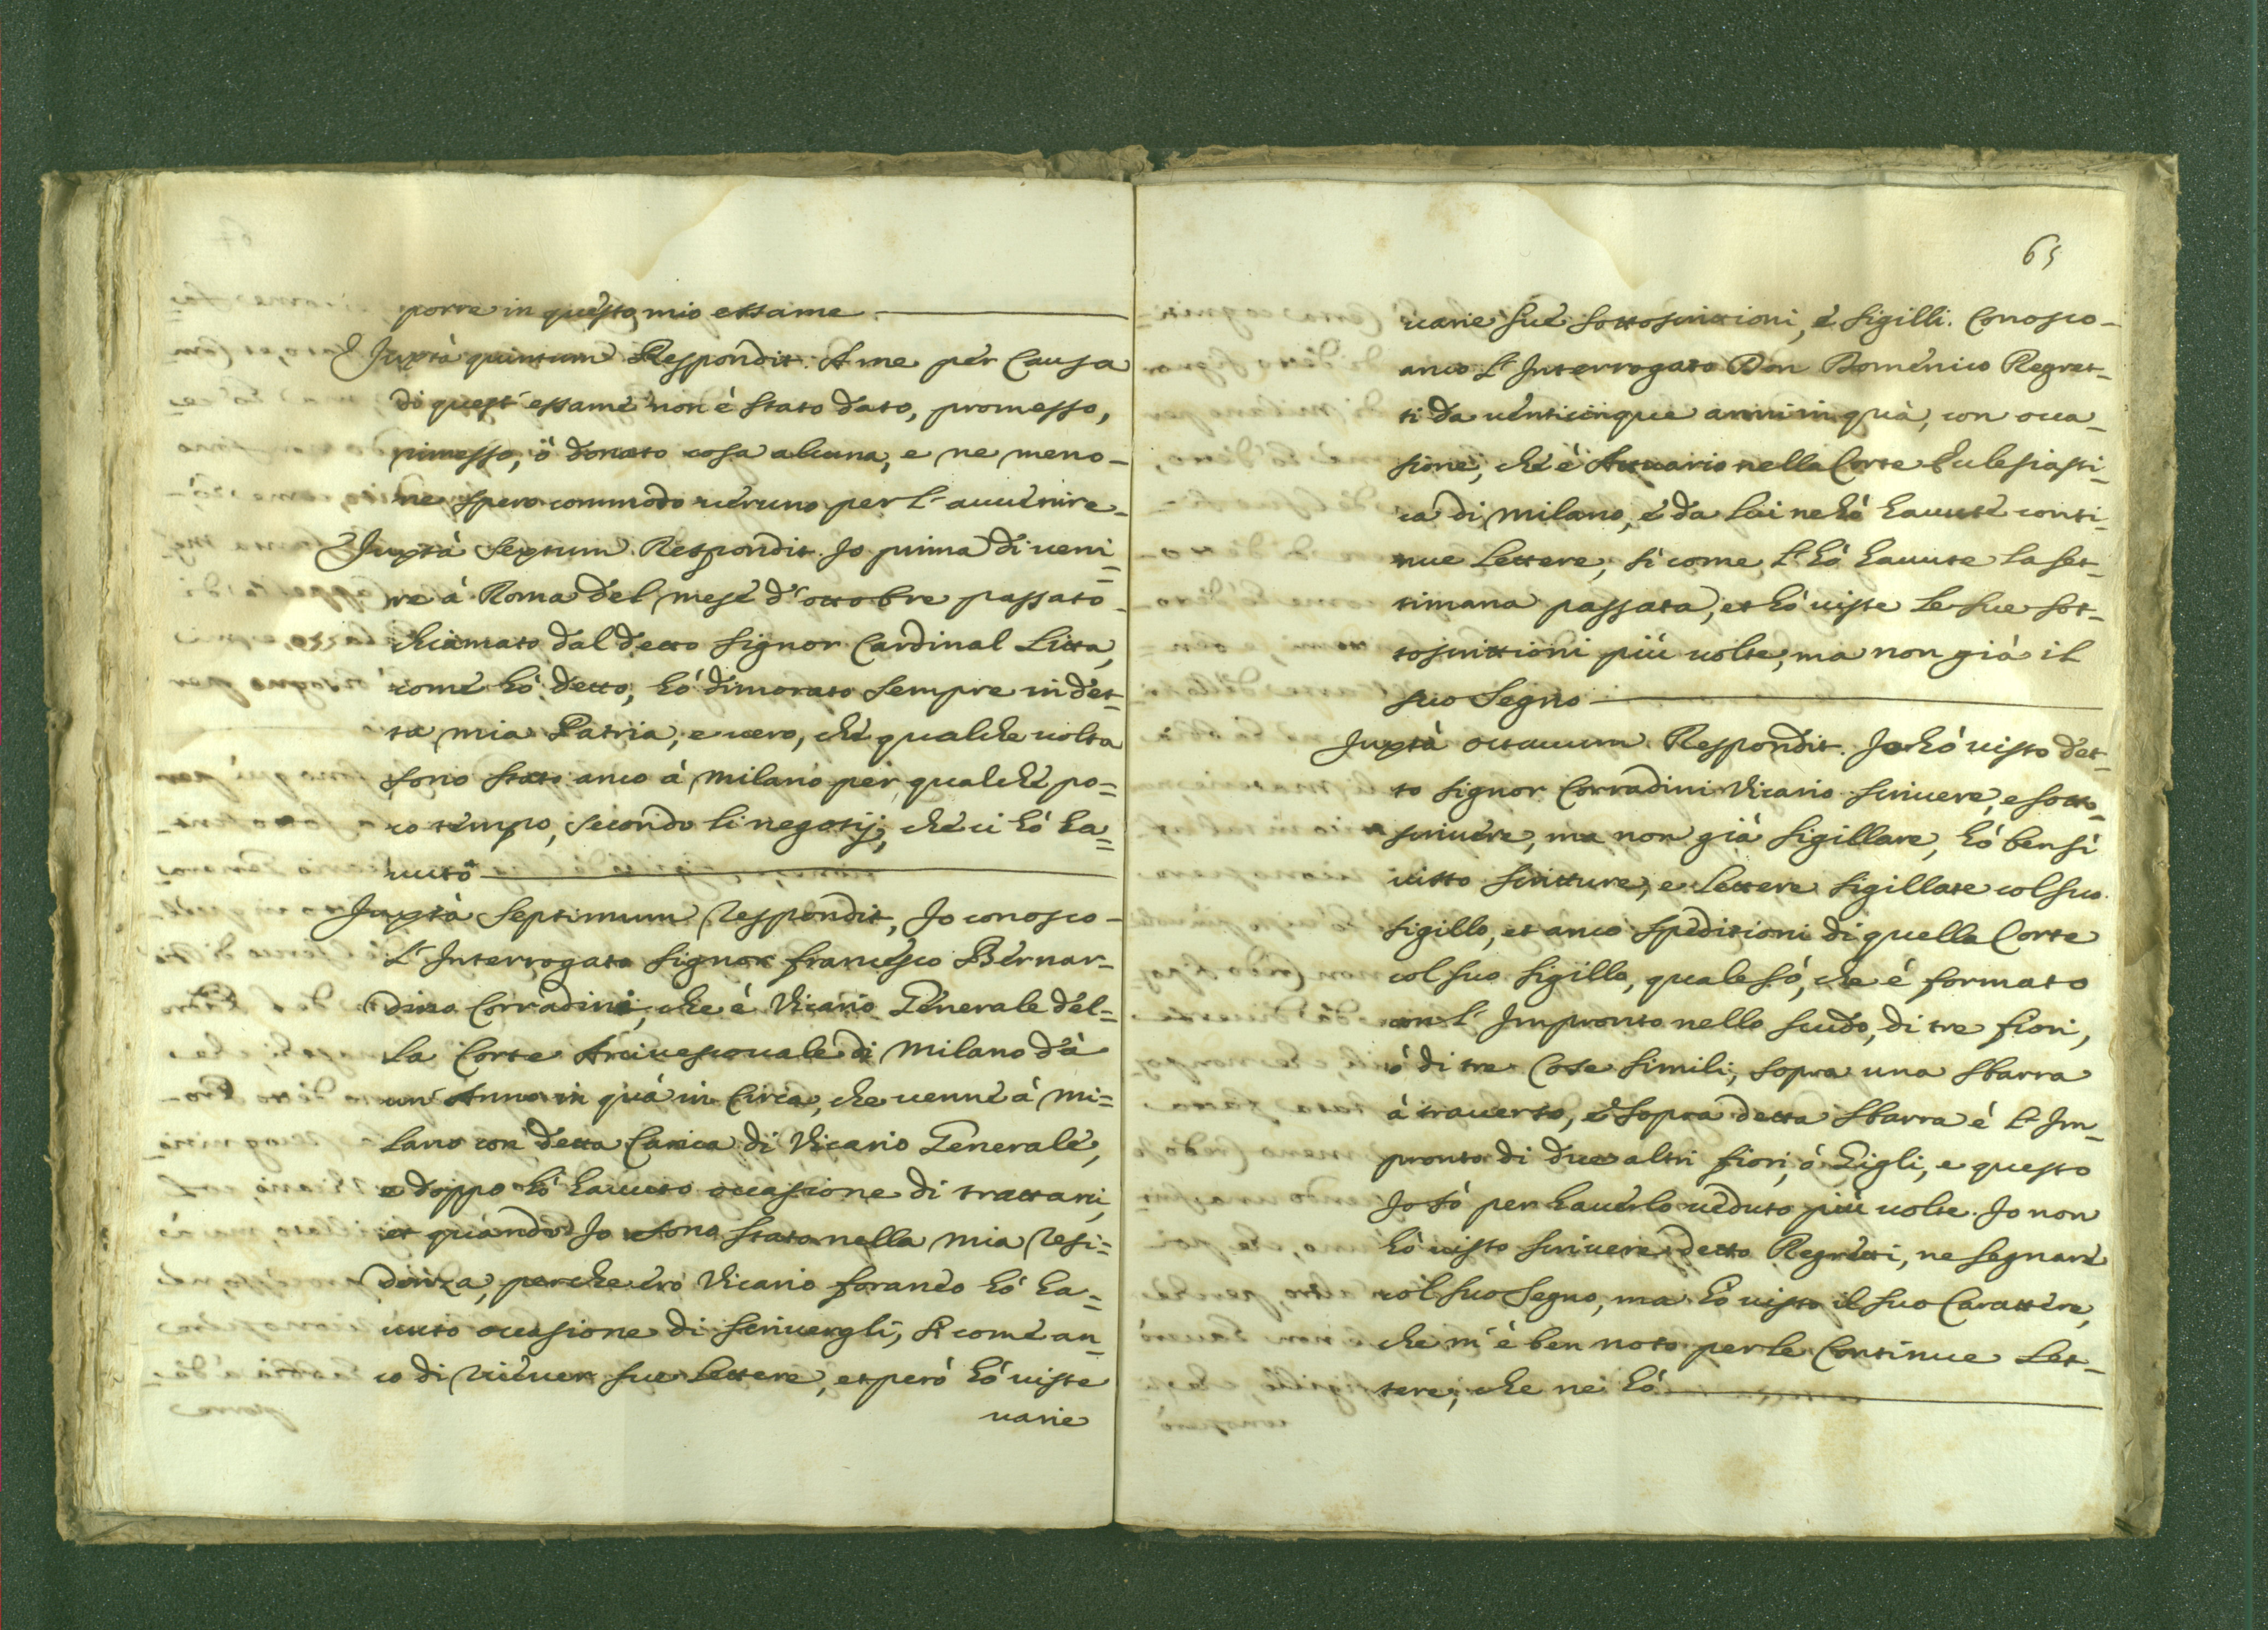 porre in questo mio essame
Juxtà quintum Respondit. A me per Causa
di quest' essame non è stato dato, promesso,
rimesso, ò donato cosa alcuna, e ne meno
ne spero commodo ueruno per l'auuenire
Juxtà sextum Respondit. Jo prima di ueni-
re à Roma del mese d'ottobre passato
chiamato dal detto signor Cardinal Litta,
come hò detto, hò dimorato sempre in det-
ta mia Patria, e uero, che qualche uolta
sono stato anco à Milano per qualche po=
co tempo, secondo li negotij, che ci hò ha=
uuto
Juxtà septimum respondit, Jo conosco
l'Interrogato signor francesco Bernar-
dino Corradini, che è Vicario Generale del=
la Corte Arciuescouale di Milano dà
un' Anno in quà in Circa, che uenne à Mi=
lano con detta Carica di Vicario Generale,
e doppo hò hauuto occasione di trattarci,
et quando Jo sono stato nella mia resi=
denza, perche ero Vicario foraneo hò ha=
uuto occasione di scriuergli, si come an=
co di riceuer sue lettere, et però hò uiste
uarie
65
uarie sue sottoscrittioni, e sigilli. Conosco
anco l'Interrogato Don Domenico Regret-
ti da uenticinque anni in quà, con occa-
sione, che è Attuario nella Corte Eclesiasti-
ca di Milano, e da lui ne hò hauute conti-
nue lettere, si come l'hò hauute la set-
timana passata, et hò uiste le sue sot-
toscrittioni più uolte, ma non già il
suo segno
Juxtà octauum Respondit. Jo hò uisto det-
to signor Corradini Vicario scriuere, e sotto-
scriuere, ma non già sigillare, hò bensì
uisto scritture, e lettere sigillate col suo
sigillo, et anco speditioni di quella Corte
col suo sigillo, quale sò, che è formato
con l'Impronto nello scudo, di tre fiori,
ò di tre Cose simili, sopra una sbarra
à trauerso, e sopra detta sbarra è l'Im-
pronto di due altri fiori, ò Gigli, e questo
Jo sò per hauerlo ueduto più uolte. Jo non
hò uisto scriuere detto Regretti, ne segnare
col suo segno, ma hò uisto il suo Carattere,
che m'è ben noto per le Continue let-
tere, che ne hò